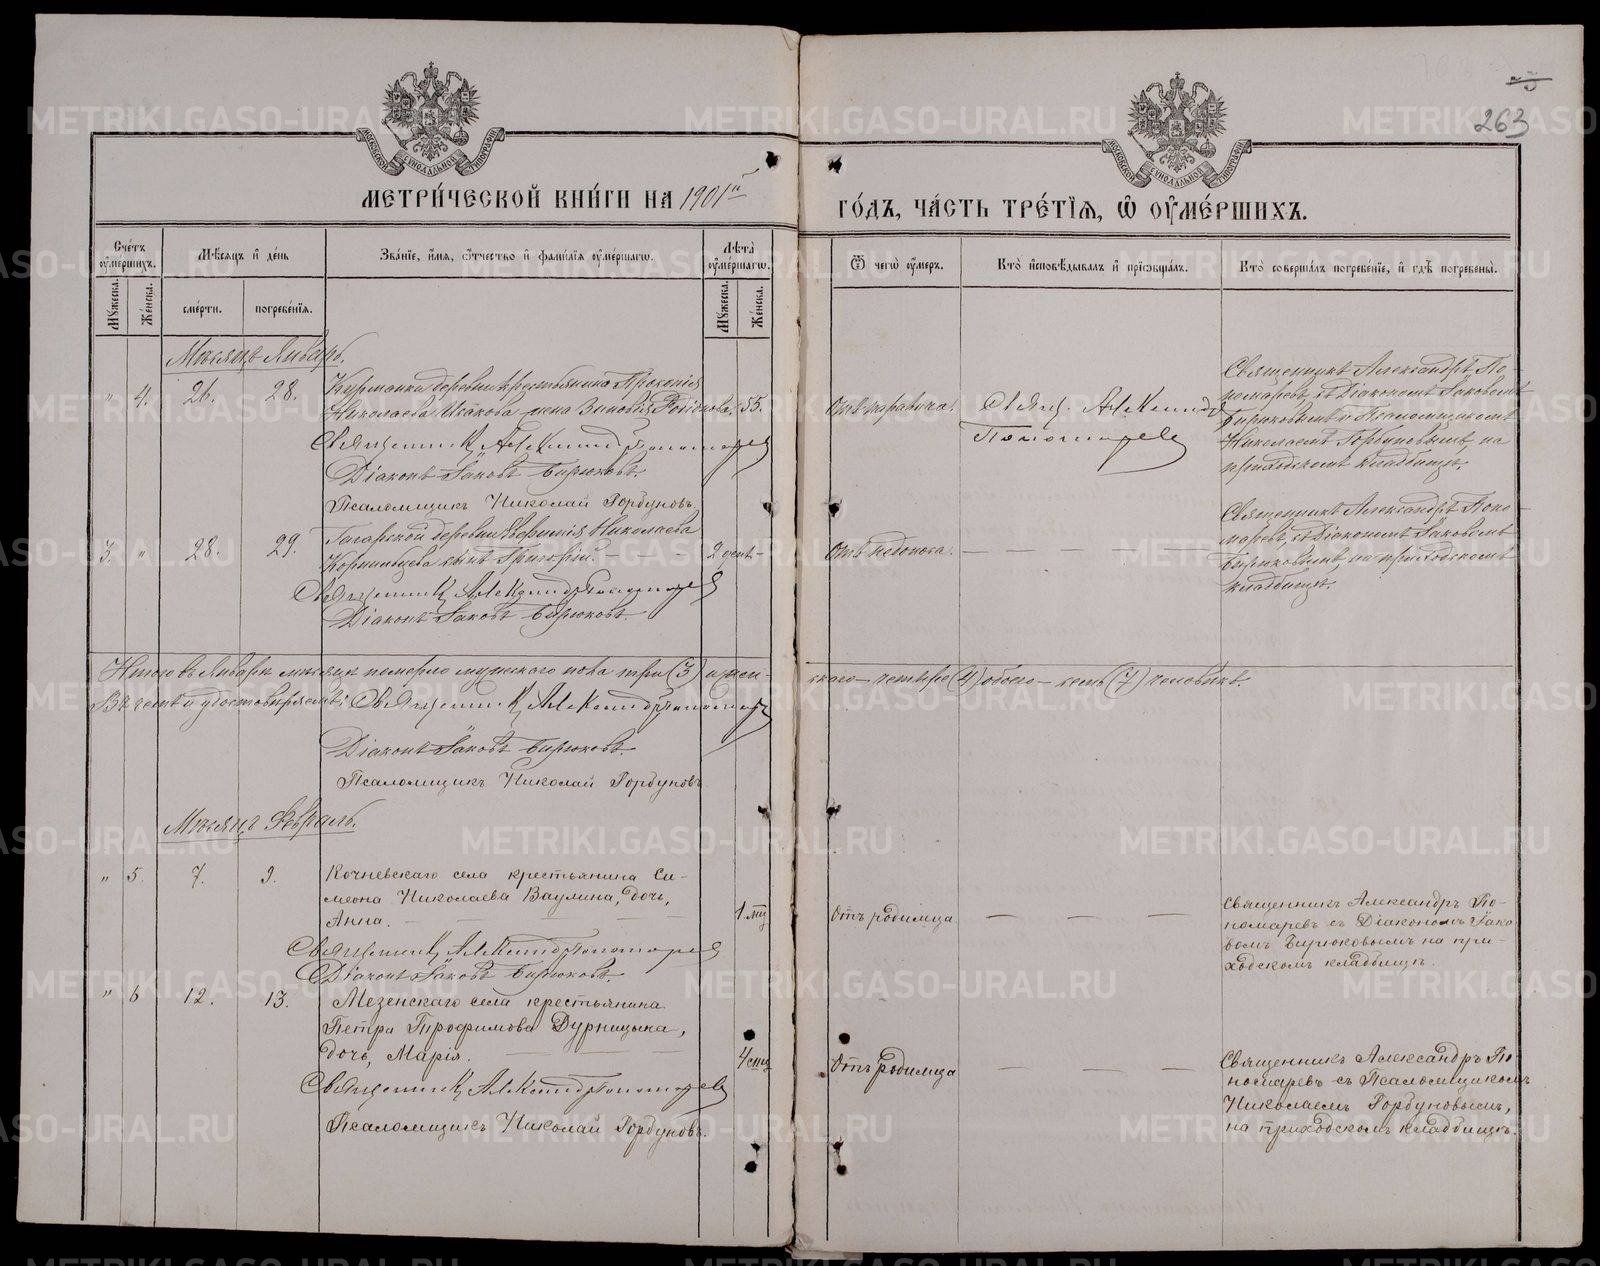 263
МОСКОВСКОЙ СУНОДАЛЬНОЙ ТИПОГРАФІИ
МОСКОВСКОЙ СУНОДАЛЬНОЙ ТИПОГРАФІИ
МЕТРИ́ЧЕСКОЙ КНИ́ГИ НА 1901й
ГО́ДЪ, ЧА́СТЬ ТРЕ́ТІЯ, Ѡ ОУМЕ́РШИХЪ.
Сче́тъ оуме́ршихъ.
Мѣсяцъ и де́нь
Зва́ніе, и́мя, о́тчество и фами́лія оуме́ршагѡ.
Лѣта̀ оуме́ршагѡ.
Ѿ чегѡ̀ оу́меръ.
Кто̀ исповѣ́дывалъ и пріѡбща́лъ.
Кто̀ соверша́лъ погребе́ніе, и гдѣ̀ погребены̀.
Му́жеска.
Же́нска.
сме́рти.
погребе́нія.
Му́жеска.
Же́нска.
Мѣсяцъ Январь.
" 4. 26. 28.
деревни крестьянина Прокопія
Николаева Исакова жена Зиновія Родіонова. 55.
Священникъ Александръ Пономаревъ
Діаконъ Іаковъ Бирюковъ.
Псаломщикъ Николай Горбуновъ.
Свящ. Александръ
Пономаревъ
Священникъ Александръ По-
номаревъ, съ Діакономъ Іаковомъ
Бирюковымъ и Псаломщикомъ
Николаемъ Горбуновымъ, на
приходскомъ кладбищѣ.
3. " 28. 29.
Гагарской деревни Николаева
сынъ Григорій. — 2 дня —
Священникъ Александръ Пономаревъ
Діаконъ Іаковъ Бирюковъ.
Отъ недоноса. — — — —
Священникъ Александръ Поно-
маревъ, съ Діакономъ Іаковомъ
Бирюковымъ, на приходскомъ
кладбищѣ.
Итого въ Январѣ мѣсяцѣ померло мужскаго пола три (3) и жен-
скаго — четыре (4) обоего — семь (7) человѣкъ.
Въ чемъ и удостовѣряемъ: Священникъ Александръ Пономаревъ
Діаконъ Іаковъ Бирюковъ.
Псаломщикъ Николай Горбуновъ
Мѣсяцъ Февраль.
" 5. 7. 9.
Кочневскаго села крестьянина Си-
меона Николаева Ваулина, дочь,
Анна. — — — 1 мц
Священникъ Александръ Пономаревъ
Діаконъ Іаковъ Бирюковъ.
Отъ родимца — — —
Священникъ Александръ По-
номаревъ съ Діакономъ Іако-
вомъ Бирюковымъ на при-
ходскомъ кладбищѣ.
" 6 12. 13.
Мезенскаго села крестьянина
Петра Трофимова Дурницына,
дочь, Марія. — — 4 мц
Священникъ Александръ Пономаревъ
Псаломщикъ Николай Горбуновъ.
Отъ родимца — — —
Священникъ Александръ По-
номаревъ съ Псаломщикомъ
Николаемъ Горбуновымъ,
на приходскомъ кладбищѣ.
METRIKI.GASO-URAL.RU